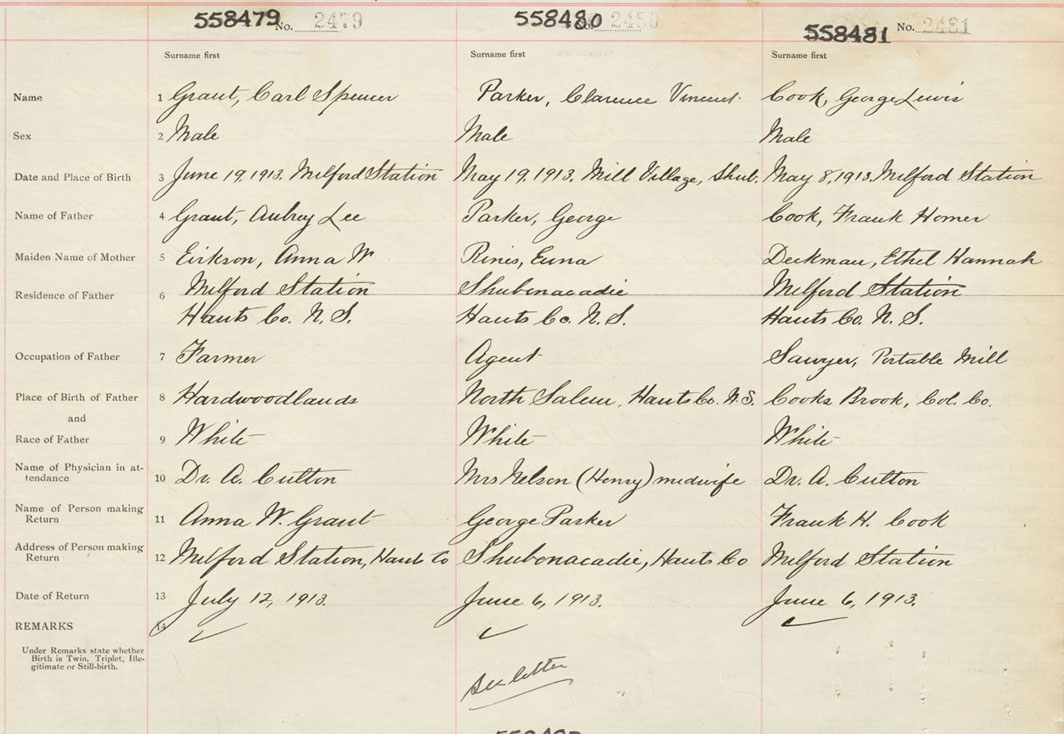 558479 No. 2479 558480 No. 2480 558481 No. 2481
Surname first Surname first Surname first
Name 1 Grant, Carl Spencer Parker, Clarence Vincent. Cook, George Lewis
Sex 2 Male Male Male
Date and Place of Birth 3 June 19, 1913. Milford Station May 19. 1913. Mill Village, Shub. May 8, 1913. Milford Station
Name of Father 4 Grant, Aubrey Lee Parker, George Cook, Frank Homer
Maiden Name of Mother 5 Eirkson, Anna W Rines, Euna Deckman, Ethel Hannah
Residence of Father 6 Milford Station Shubenacadie Milford Station
Hants Co. N. S. Hants Co. N. S. Hants Co. N. S.
Occupation of Father 7 Farmer Agent Sawyer, Portable Mill
Place of Birth of Father 8 Hardwoodlands North Salem, Hants Co. N.S. Cooks Brook, Col. Co.
and
Race of Father 9 White White White
Name of Physician in at-
tendance 10 Dr. A. Cutton Mrs Nelson (Henry) midwife Dr. A. Cutton
Name of Person making
Return 11 Anna W. Grant George Parker Frank H. Cook
Address of Person making
Return 12 Milford Station, Hants Co Shubenacadie, Hants Co Milford Station
Date of Return 13 July 12, 1913. June 6, 1913. June 6, 1913.
REMARKS 14
Under Remarks state whether
Birth is Twin, Triplet, Ille-
gitimate or Still-birth.
See letter